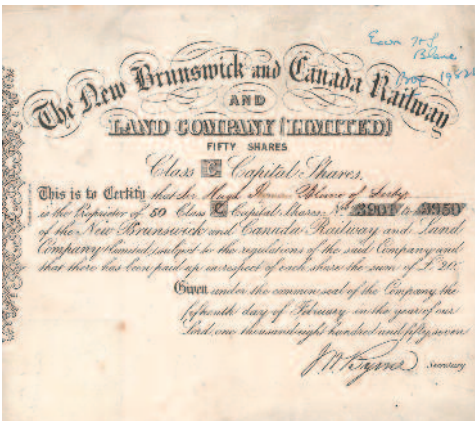 The New Brunswick and Canada Railway
AND
LAND COMPANY (LIMITED)
FIFTY SHARES
Class E Capital Shares.
This is to Certify that Sir Hugh Blane of
is the Proprietor of 50 Class E Capital Shares No. 3901 to 3950
of the New Brunswick and Canada Railway and Land
Company Limited, subject to the regulations of the said Company and
that there has been paid up in respect of each share the sum of £
Given under the common seal of the Company the
fifteenth day of February in the year of our
Lord, one thousand eight hundred and fifty seven
Secretary